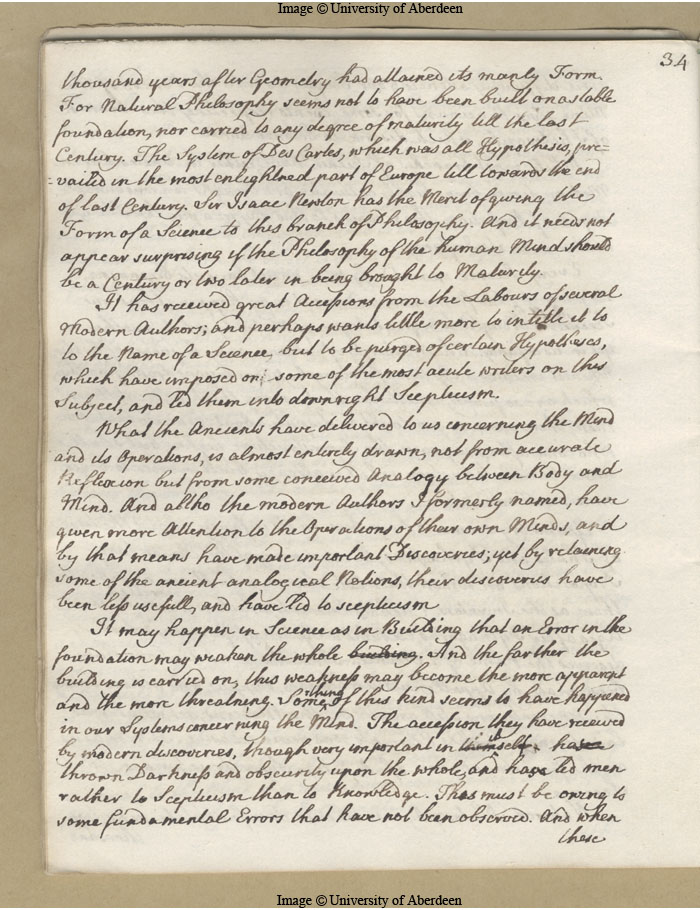 Image © University of Aberdeen
34
thousand years after Geometry had attained its manly Form.
For Natural Philosophy seems not to have been built on a stable
foundation, nor carried to any degree of maturity till the last
Century. The System of Des Cartes, which was all Hypothesis, pre=
=vailed in the most enlightned part of Europe till towards the end
of last Century. Sir Isaac Newton has the Merit of giving the
Form of a Science to this branch of Philosophy. And it needs not
appear surprising if the Philosophy of the human Mind should
be a Century or two later in being brought to Maturity.
It has received great Accessions from the Labours of several
Modern Authors; and perhaps wants little more to intitle it to
to the Name of a Science, but to be purged of certain Hypotheses,
which have imposed on some of the most acute writers on this
Subject, and led them into downright Scepticism.
What the Ancients have delivered to us concerning the Mind
and its Operations, is almost entirely drawn, not from accurate
Reflexion but from some conceived Analogy between Body and
Mind. And altho the modern Authors I formerly named, have
given more Attention to the Operations of their own Minds, and
by that means have made important Discoveries; yet by retaining
some of the ancient analogical Notions, their discoveries have
been less usefull, and have led to scepticism
It may happen in Science as in Building that an Error in the
foundation may weaken the whole building. And the farther the
building is carried on, this weakness may become the more apparent
and the more threatning. Something of this kind seems to have happened
in our Systems concerning the Mind. The accession they have received
by modern discoveries, though very important in itself have
thrown Darkness and obscurity upon the whole, and has led men
rather to Scepticism than to Knowledge. This must be owing to
some fundamental Errors that have not been observed. And when
these
Image © University of Aberdeen